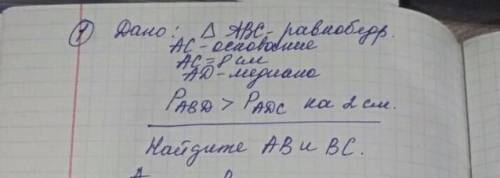 ① Дано: △ ABC - равнобедр.
AC - основание
AC = 8 см
AD - медиана
P ABD > P ADC на 2 см.
Найдите AB и BC.